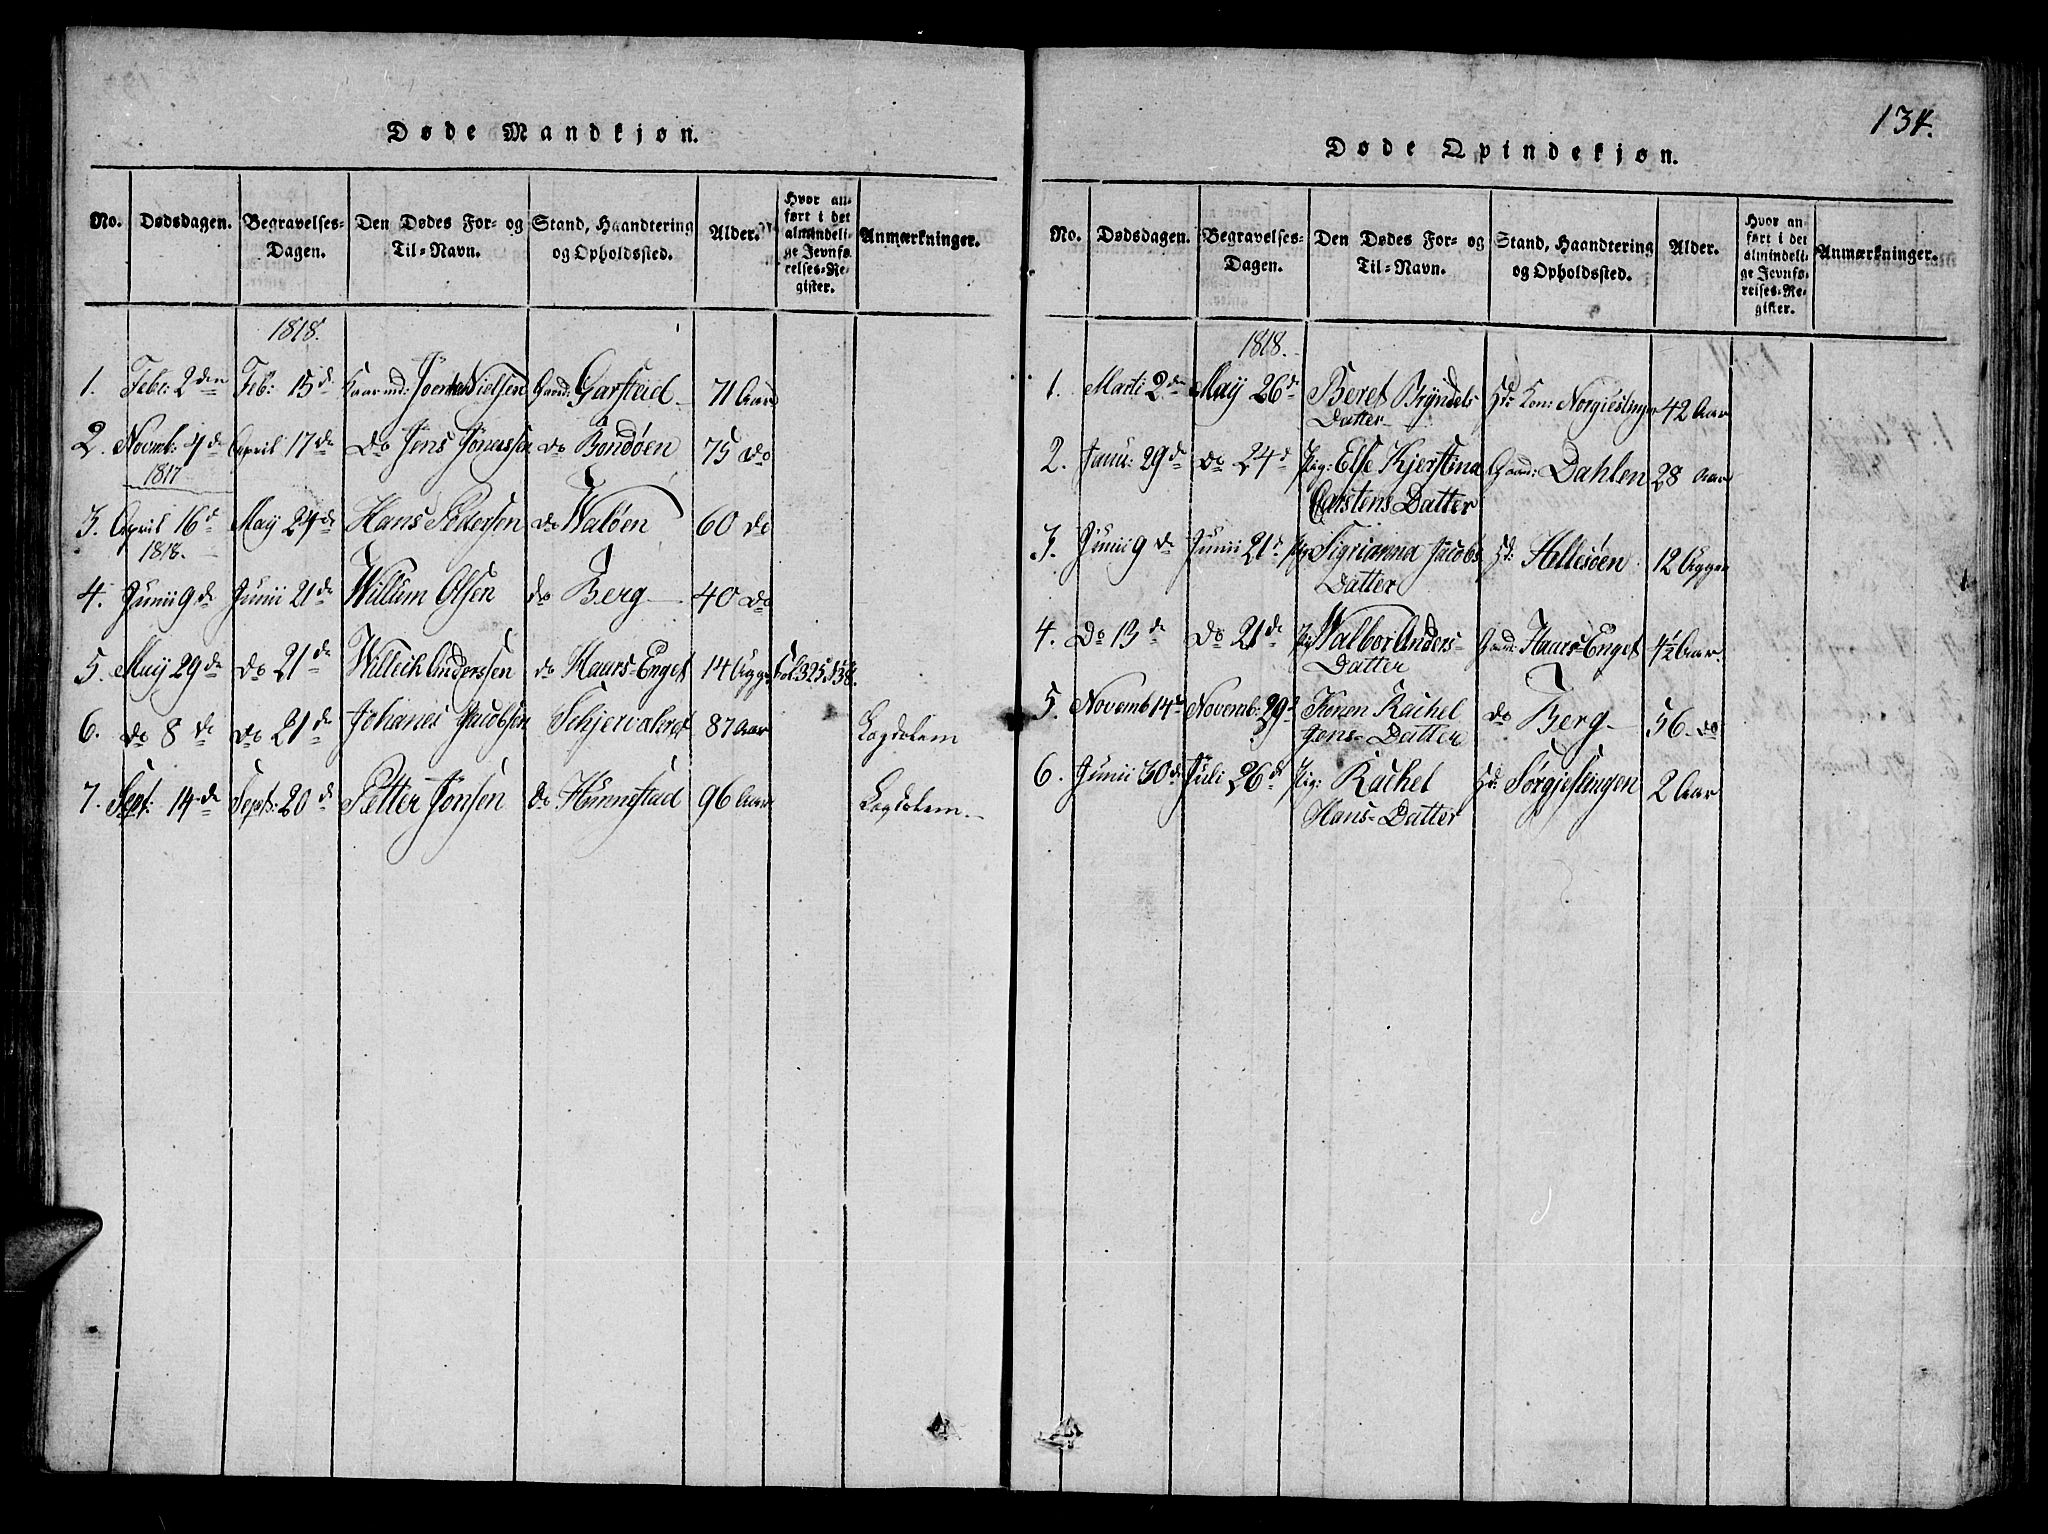 134.
Døde Mandkjøn.
No. Dødsdagen. Begravelses-Dagen. Den Dødes For- og Til-Navn. Stand, Haandtering og Opholdssted. Alder. Hvor anført i det almindelige Jevnførelses-Register. Anmærkninger.
1818.
1. Febr: 2den Feb: 15d Nielsen Gaard: Garsteid 71 Aar
2. Novemb: 4de April 17de do Jens Jonassen do Bondøen 75 do
1817
3. April 16d May 24de Hans Pedersen do Waløen 60 do
1818.
4. Junii 9de Junii 21de Willum Olsen do Berg 40 do
5. May 29de do 21de Willeich Anderssen do Haars-Enget 14 Uger Fol: 325. 138.
6. do 8de do 21de Johanes Jacobsen Schjervahret 87 Aar Lægdslem
7. Sept: 14de Sept: 20de Petter Jonsen do Hommstad 96 Aar Lægdslem.
Døde Qvindekjøn.
No. Dødsdagen. Begravelses-Dagen. Den Dødes For- og Til-Navn. Stand, Haandtering og Opholdssted. Alder. Hvor anført i det almindelige Jevnførelses-Register. Anmærkninger.
1818.
1. Marti 2de May 26de Beret Bryndels Hd: Kon: Norgieslingen 42 Aar
Datter
2. Janu: 29de do 24d Pig: Else Kjerstina Gaard: Dahlen 28 Aar
Carstens Datter
3. Junii 9de Junii 21d Pig Sigrianna Jacobs Hd: Hellesøen 12 Ugger
Datter
4. Do 13de Do 21de Pig Walbor Anders- Gaard: Haars-Enget 4½ Aar.
Datter
5. Novemb 14de Novemb: 29d Konen Rachel do Berg 56 do
Jens-Datter
6. Junii 30de Juli 26de Pig: Rachel Hd: Sørgjeslingen 2 Aar
Hans-Datter